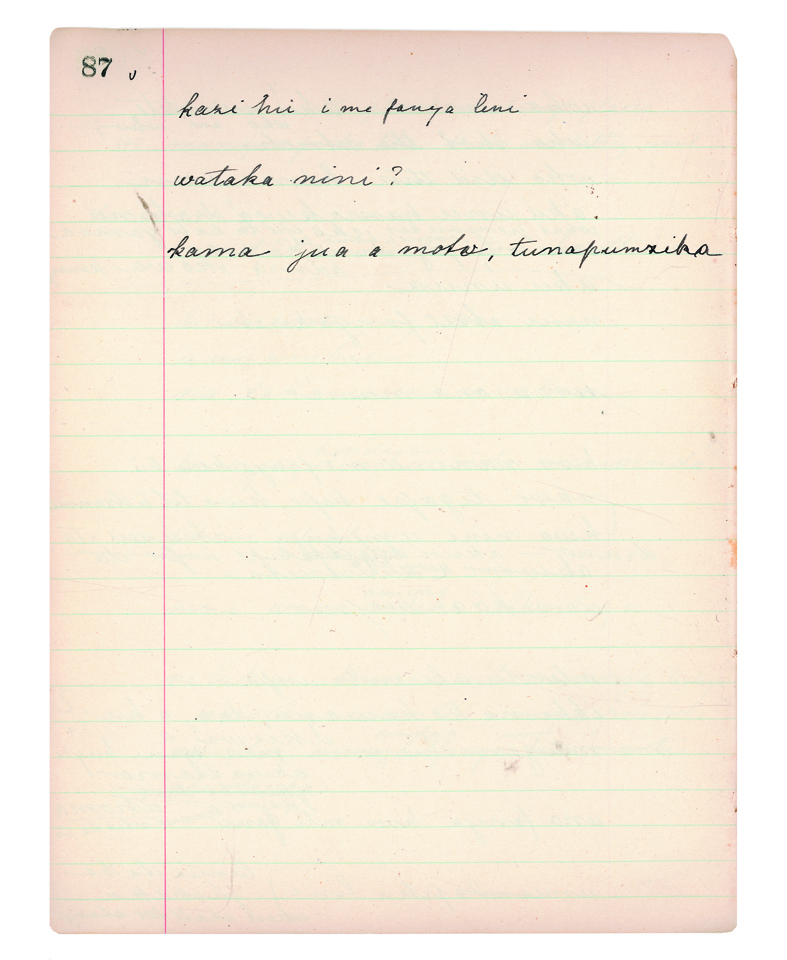 87 v
kazi hii i me fanya leni
wataka nini?
kama jua a moto, tunapumzika